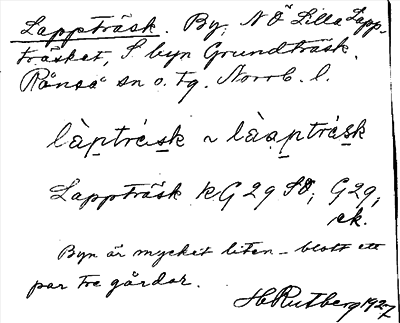 Lappträsk. By, NÖ Lilla Lapp-
träsket, S. byn Grundträsk.
Råneå sn o. tg. Norrb. l.
làptrá̀sk ~ làaptrá̀sk
Lappträsk kG 29 SO; G29,
ek.
Byn är mycket liten – blott ett
par tre gårdar.
H Rutberg 1927